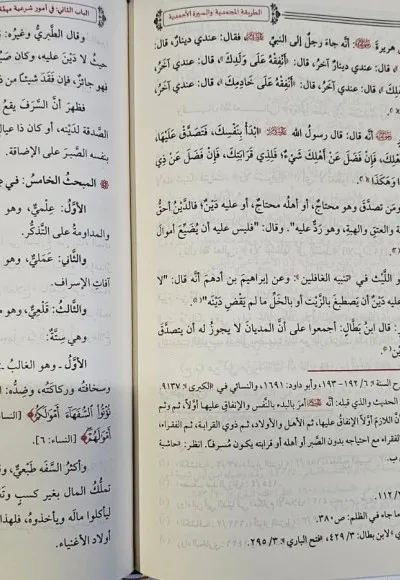 الطريقة المحمدية والسيرة الأحمدية
هريرة ﷺ: أنَّه جاءَ رجلٌ إلى النبيِّ ﷺ فقال: عندي دينارٌ، قال:
قال: عندي دينارٌ آخرُ، قال: «أَنْفِقْهُ عَلَى وَلَدِكَ» قال: عندي آخرُ،
لِكَ» قال: عندي آخرُ، قال: «أَنْفِقْهُ عَلَى خَادِمِكَ» قال: عندي آخرُ،
أنَّه قال: قال رسولُ الله ﷺ: «ابْدَأْ بِنَفْسِكَ، فَتَصَدَّقْ عَلَيْهَا،
هْلِكَ، فَإِنْ فَضَلَ عَنْ أَهْلِكَ شَيْءٌ؛ فَلِذِي قَرَابَتِكَ، فَإِنْ فَضَلَ عَنْ ذِي
ا وَهَكَذَا»
ومَن تصدَّقَ وهو محتاجٌ، أو أهلُه محتاجٌ، أو عليه دَيْنٌ؛ فالدَّيْنُ أحقُّ
والعتقِ والهبةِ، وهو ردٌّ عليه". وقال: "فليس عليه أن يُضَيِّعَ أموالَ
و اللَّيْث في «تنبيه الغافلين»: وعن إبراهيمَ بنِ أدهمَ أنَّه قال: "لا
ليه دَيْنٌ أن يَصطبِغَ بالزَّيْتِ أو بالخَلِّ ما لم يَقْضِ دَيْنَه"
: قال ابنُ بطَّال: أجمعوا على أنَّ المديانَ لا يجوزُ له أن يتصدَّقَ
رح السنة» ٦: ١٩٢-١٩٣، وأبو داود: ١٦٩١، والنسائي في «الكبرى»: ٩١٣٧.
والحديث والذي قبله: أنَّه ﷺ أمرَ بالبدء بالنَّفس والإنفاقِ عليها أوَّلاً، ثم وثم
نَّ اللازمَ أوَّلاً الإنفاقُ عليها، ثم الأهل والأولاد، ثم ذوي القرابة، ثم الفقراء،
الفقراء مع احتياجه بدون الصَّبر أو أهله أو قرابته يكون مُسرفاً. انظر: «حاشية
ب.
١١٢/٢
ما جاء في الظلم: ص٣٨٠.
ي» لابن بطال: ٤٢٩/٣، «فتح الباري»: ٢٩٥/٣.
الباب الثاني: في أمور شرعية مهمَّة
وقال الطَّبريُّ وغيرُه:
حيثُ لا دَيْنَ عليه، وكان صَبُ
فهو جائزٌ، فإن فَقَدَ شيئاً من ذ
فظهرَ أنَّ السَّرَفَ يقعُ
الصَّدقة لدَيْنِه، أو كان ذا عيالٍ
بنفسه الصَّبرَ على الإضاقة.
المبحثُ الخامسُ: في ع
الأوَّلُ: عِلْميٌّ، وهو
والمداومةُ على التَّذكُّر.
والثَّاني: عَمَليٌّ، وهو
آفاتِ الإسراف.
والثَّالثُ: قَلْعيٌّ، وهو م
وهي سِتَّةٌ:
الأوَّل - وهو الغالبُ
وسخافتُه وركاكتُه، وضِدُّه: ا
تُؤْتُوا السُّفَهَاءَ أَمْوَالَكُمُ﴾ [النسا
أَمْوَالَهُمْ﴾ [النساء: ٦].
وأكثرُ السَّفَه طَبْعيٌّ، و
تملُّكُ المال بغير كسبٍ وتَ
ليأكلوا مالَه ويأخذوه، فلهذا
أولاد الأغنياء.